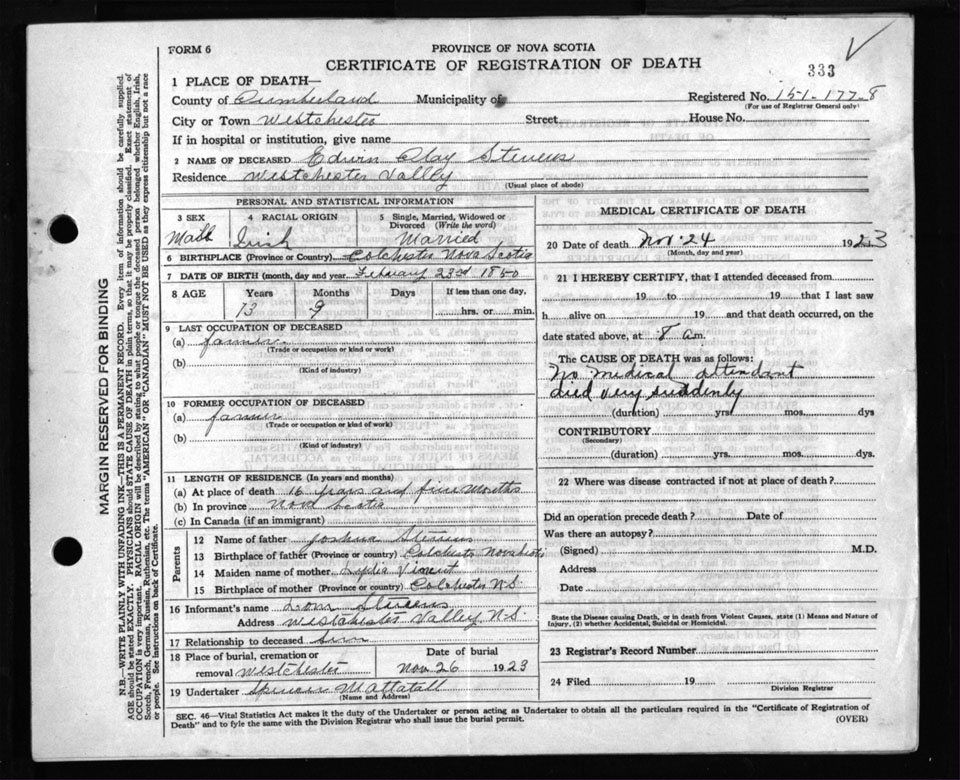 FORM 6
PROVINCE OF NOVA SCOTIA
CERTIFICATE OF REGISTRATION OF DEATH
333
1 PLACE OF DEATH—
County of Cumberland Municipality of Registered No. 151-177-8
(For use of Registrar General only)
City or Town Westchester Street House No.
If in hospital or institution, give name
2 NAME OF DECEASED Edwin Clay Stevens
Residence Westchester Vallly
(Usual place of abode)
PERSONAL AND STATISTICAL INFORMATION
3 SEX 4 RACIAL ORIGIN 5 Single, Married, Widowed or Divorced (Write the word)
Male Irish Married
6 BIRTHPLACE (Province or Country) Colchester Nova Scotia
7 DATE OF BIRTH (month, day and year) February 23rd 1850
8 AGE Years Months Days If less than one day,
73 9 hrs. or min.
9 LAST OCCUPATION OF DECEASED
(a) farmer
(Trade or occupation or kind or work)
(b)
(Kind of industry)
10 FORMER OCCUPATION OF DECEASED
(a) farmer
(Trade or occupation or kind of work)
(b)
(Kind of industry)
11 LENGTH OF RESIDENCE (In years and months)
(a) At place of death 16 years and Months
(b) In province Nova Scotia
(c) In Canada (if an immigrant)
Parents
12 Name of father Joshua Stevens
13 Birthplace of father (Province or country) Colchester Nova Scotia
14 Maiden name of mother Lydia Vincent
15 Birthplace of mother (Province or country) Colchester N.S.
16 Informant's name Stevens
Address Westchester Valley N.S.
17 Relationship to deceased Son
18 Place of burial, cremation or removal Westchester
Date of burial
Nov 26 1923
19 Undertaker Spencer Mattatall
(Name and Address)
MEDICAL CERTIFICATE OF DEATH
20 Date of death Nov. 24 1923
(Month, day and year)
21 I HEREBY CERTIFY, that I attended deceased from
19 to 19 that I last saw
h alive on 19 and that death occurred, on
date stated above, at 8 a.m.
The CAUSE OF DEATH was as follows:
No medical attendant
died very suddenly
(duration) yrs. mos. dys
CONTRIBUTORY
(Secondary)
(duration) yrs. mos. dys.
22 Where was disease contracted if not at place of death?
Did an operation precede death? Date of
Was there an autopsy?
(Signed) M.D.
Address
Date
State the Disease causing Death, or in death from Violent Causes, state (1) Means and Nature of Injury, (2) whether Accidental, Suicidal or Homicidal.
23 Registrar's Record Number
24 Filed 19
Division Registrar
SEC. 46—Vital Statistics Act makes it the duty of the Undertaker or person acting as Undertaker to obtain all the particulars required in the "Certificate of Registration of
Death" and to fyle the same with the Division Registrar who shall issue the burial permit.
(OVER)
MARGIN RESERVED FOR BINDING
N.B.—WRITE PLAINLY WITH UNFADING INK—THIS IS A PERMANENT RECORD. Every item of information should be carefully supplied.
AGE should be stated EXACTLY. PHYSICIANS should STATE CAUSE OF DEATH in plain terms, so that it may be properly classified. Exact statement of
OCCUPATION is very important. RACIAL ORIGIN will be described by stating to what people or tongue the deceased person belonged whether English, Irish,
Scotch, French, German, Russian, Ruthenian, etc. The terms "AMERICAN" OR "CANADIAN" MUST NOT BE USED as they express citizenship but not a race
or people. See instructions on back of Certificate.